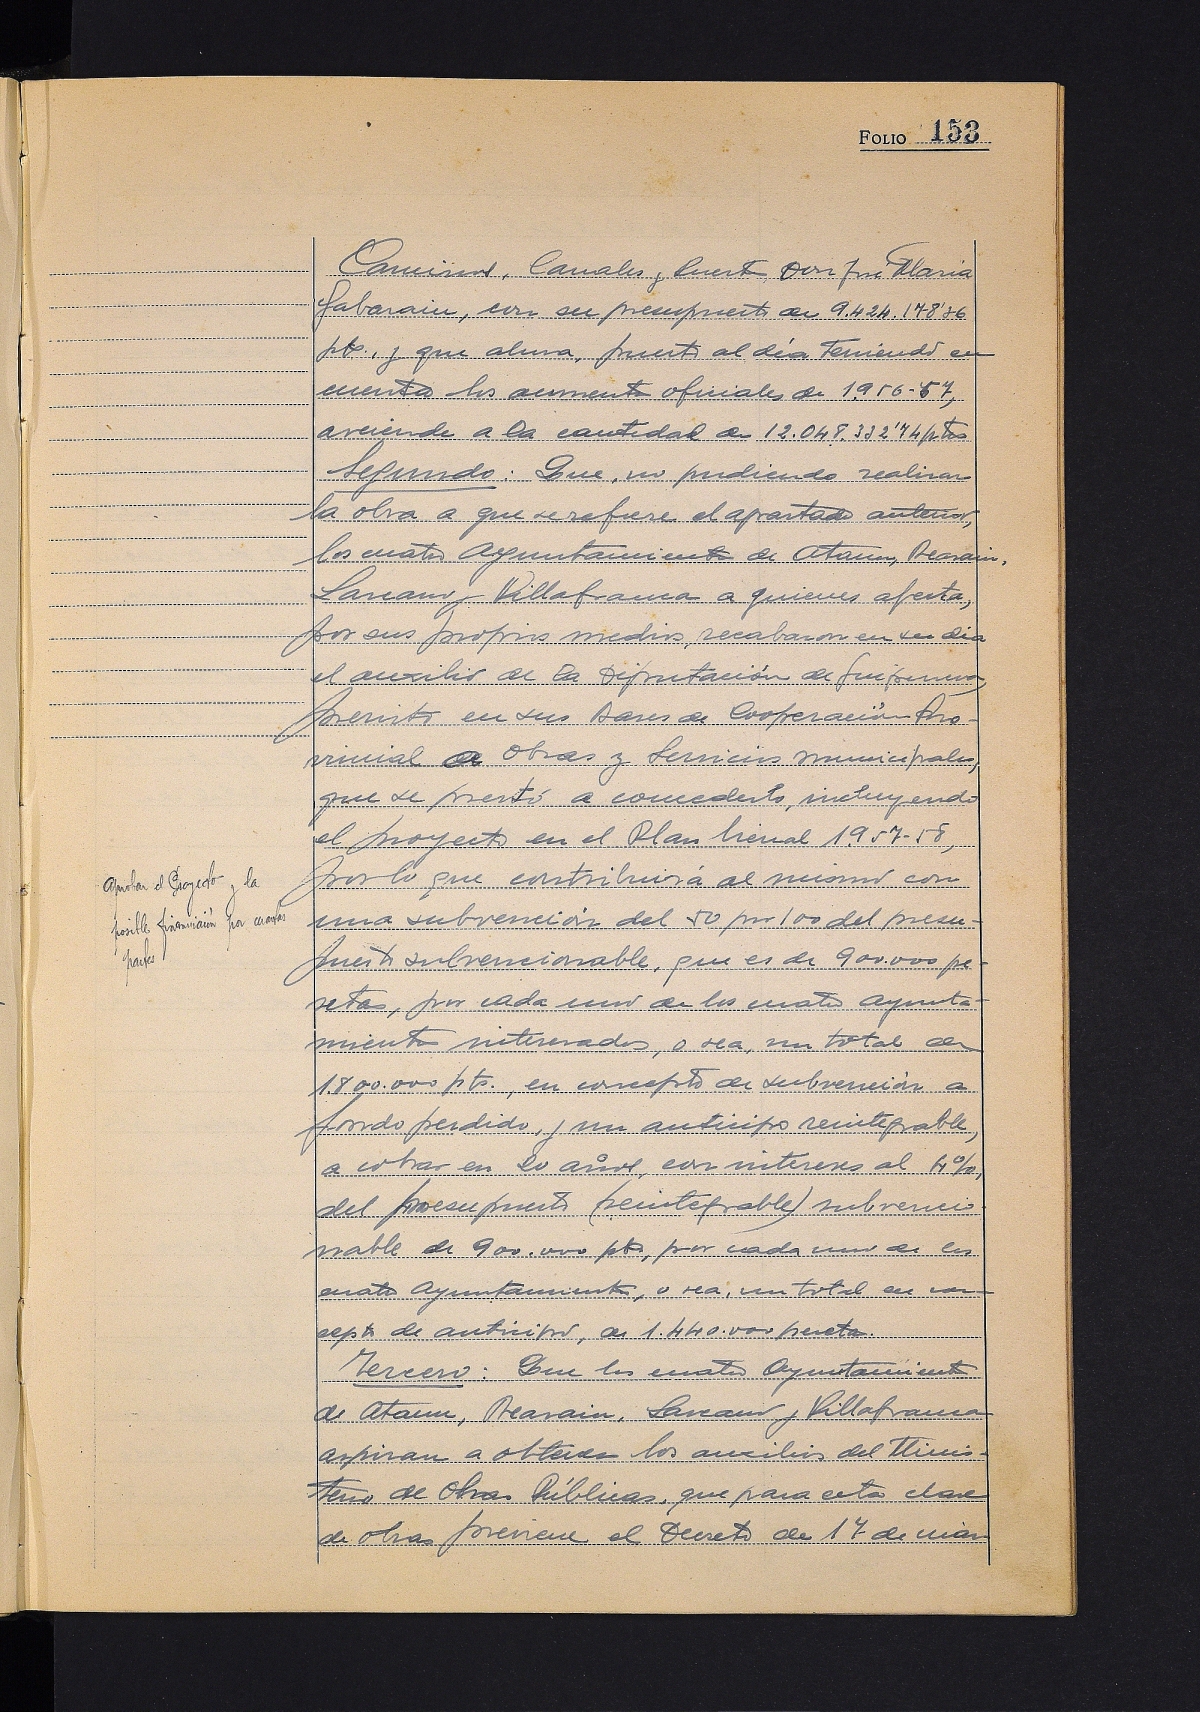 FOLIO 153
Caminos, Canales y Puertos Don José Maria
Gabarain, con su presupuesto de 9.424.178'36
pts., y que ahora, puesto al día teniendo en
cuenta los aumentos oficiales de 1.956-57,
asciende a la cantidad de 12.048.332'74 ptas
Segundo: Que, no pudiendo realizar
la obra a que se refiere el apartado anterior,
los cuatro Ayuntamientos de Ataun, Beasain,
Lazcano y Villafranca a quienes afecta,
por sus propios medios, recabaron en su dia
el auxilio de la Diputación de Guipuzcoa,
previsto en sus Bases de Cooperación Pro-
vincial a Obras y Servicios municipales,
que se prestó a concederlo, incluyendo
el proyecto en el Plan bienal 1957-58,
por lo que contribuirá al mismo con
una subvención del 50 por 100 del presu-
puesto subvencionable, que es de 900.000 pe-
setas, por cada uno de los cuatro ayunta-
mientos interesados, o sea, un total de
1.800.000 pts., en concepto de subvención a
fondo perdido, y un anticipo reintegrable,
a cobrar en 20 años, con intereses al 4%,
del presupuesto (reintegrable) subvencio-
nable de 900.000 pts, por cada uno de los
cuatro Ayuntamientos, o sea, un total en con-
cepto de anticipo, de 1.440.000 pesetas.
Tercero: Que los cuatro Ayuntamientos
de Ataun, Beasain, Lazcano y Villafranca
aspiran a obtener los auxilios del Minis-
terio de Obras Públicas, que para esta clase
de obras previene el Decreto de 17 de mar
Aprobar el Proyecto y la
posible financiación por cuartas
partes